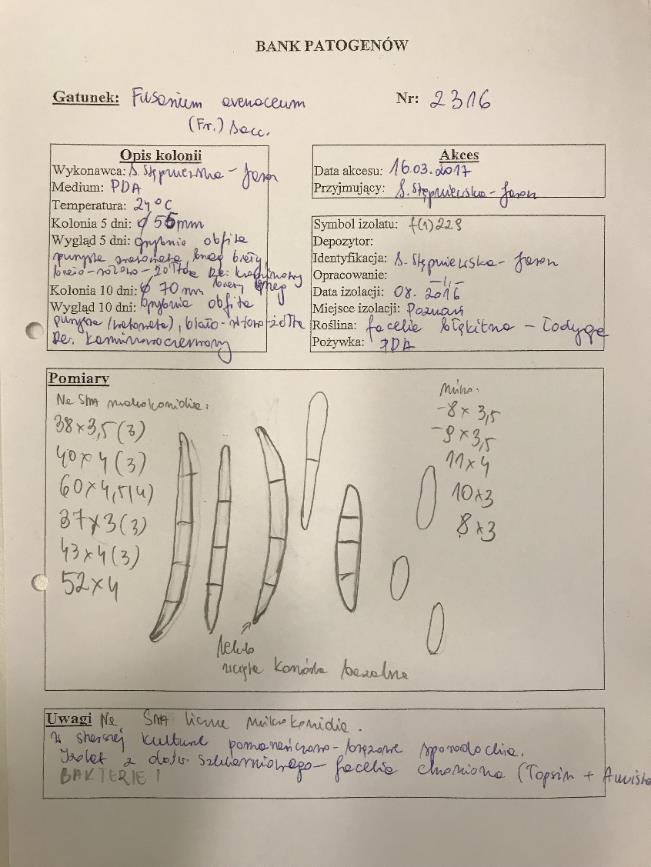 BANK PATOGENÓW
Gatunek: Fusarium avenaceum
(Fr.) Sacc.
Nr: 2316
Opis kolonii
Wykonawca: S. Stępniewska-Jarosz
Medium: PDA
Temperatura: 24°C
Kolonia 5 dni: ϕ 55 mm
Wygląd 5 dni: grzybnia obfita
puszysta brzeg biały
biało-różowo-żółta Re:
Kolonia 10 dni: ϕ 70 mm
Wygląd 10 dni: grzybnia obfita
puszysta (watowata), biało-różowo-żółta
Re. karminowoczerwony
Akces
Data akcesu: 16.03.2017
Przyjmujący: S. Stępniewska-Jarosz
Symbol izolatu: f(1)229
Depozytor:
Identyfikacja: S. Stępniewska-Jarosz
Opracowanie: -//-
Data izolacji: 08.2016
Miejsce izolacji: Poznań
Roślina: facelia błękitna - łodyga
Pożywka: PDA
Pomiary
Na SNA makrokonidia:
38×3,5 (3)
40×4 (3)
60×4,5 (4)
37×3 (3)
43×4 (3)
52×4
Mikro:
-8×3,5
-9×3,5
11×4
10×3
8×3
lekko
wcięta komórka bazalna
Uwagi Na SNA liczne mikrokonidia.
W starszej kulturze pomarańczowo-brązowe sporodochia.
Izolat z dośw. szklarniowego - facelia chroniona (Topsin +
BAKTERIE!